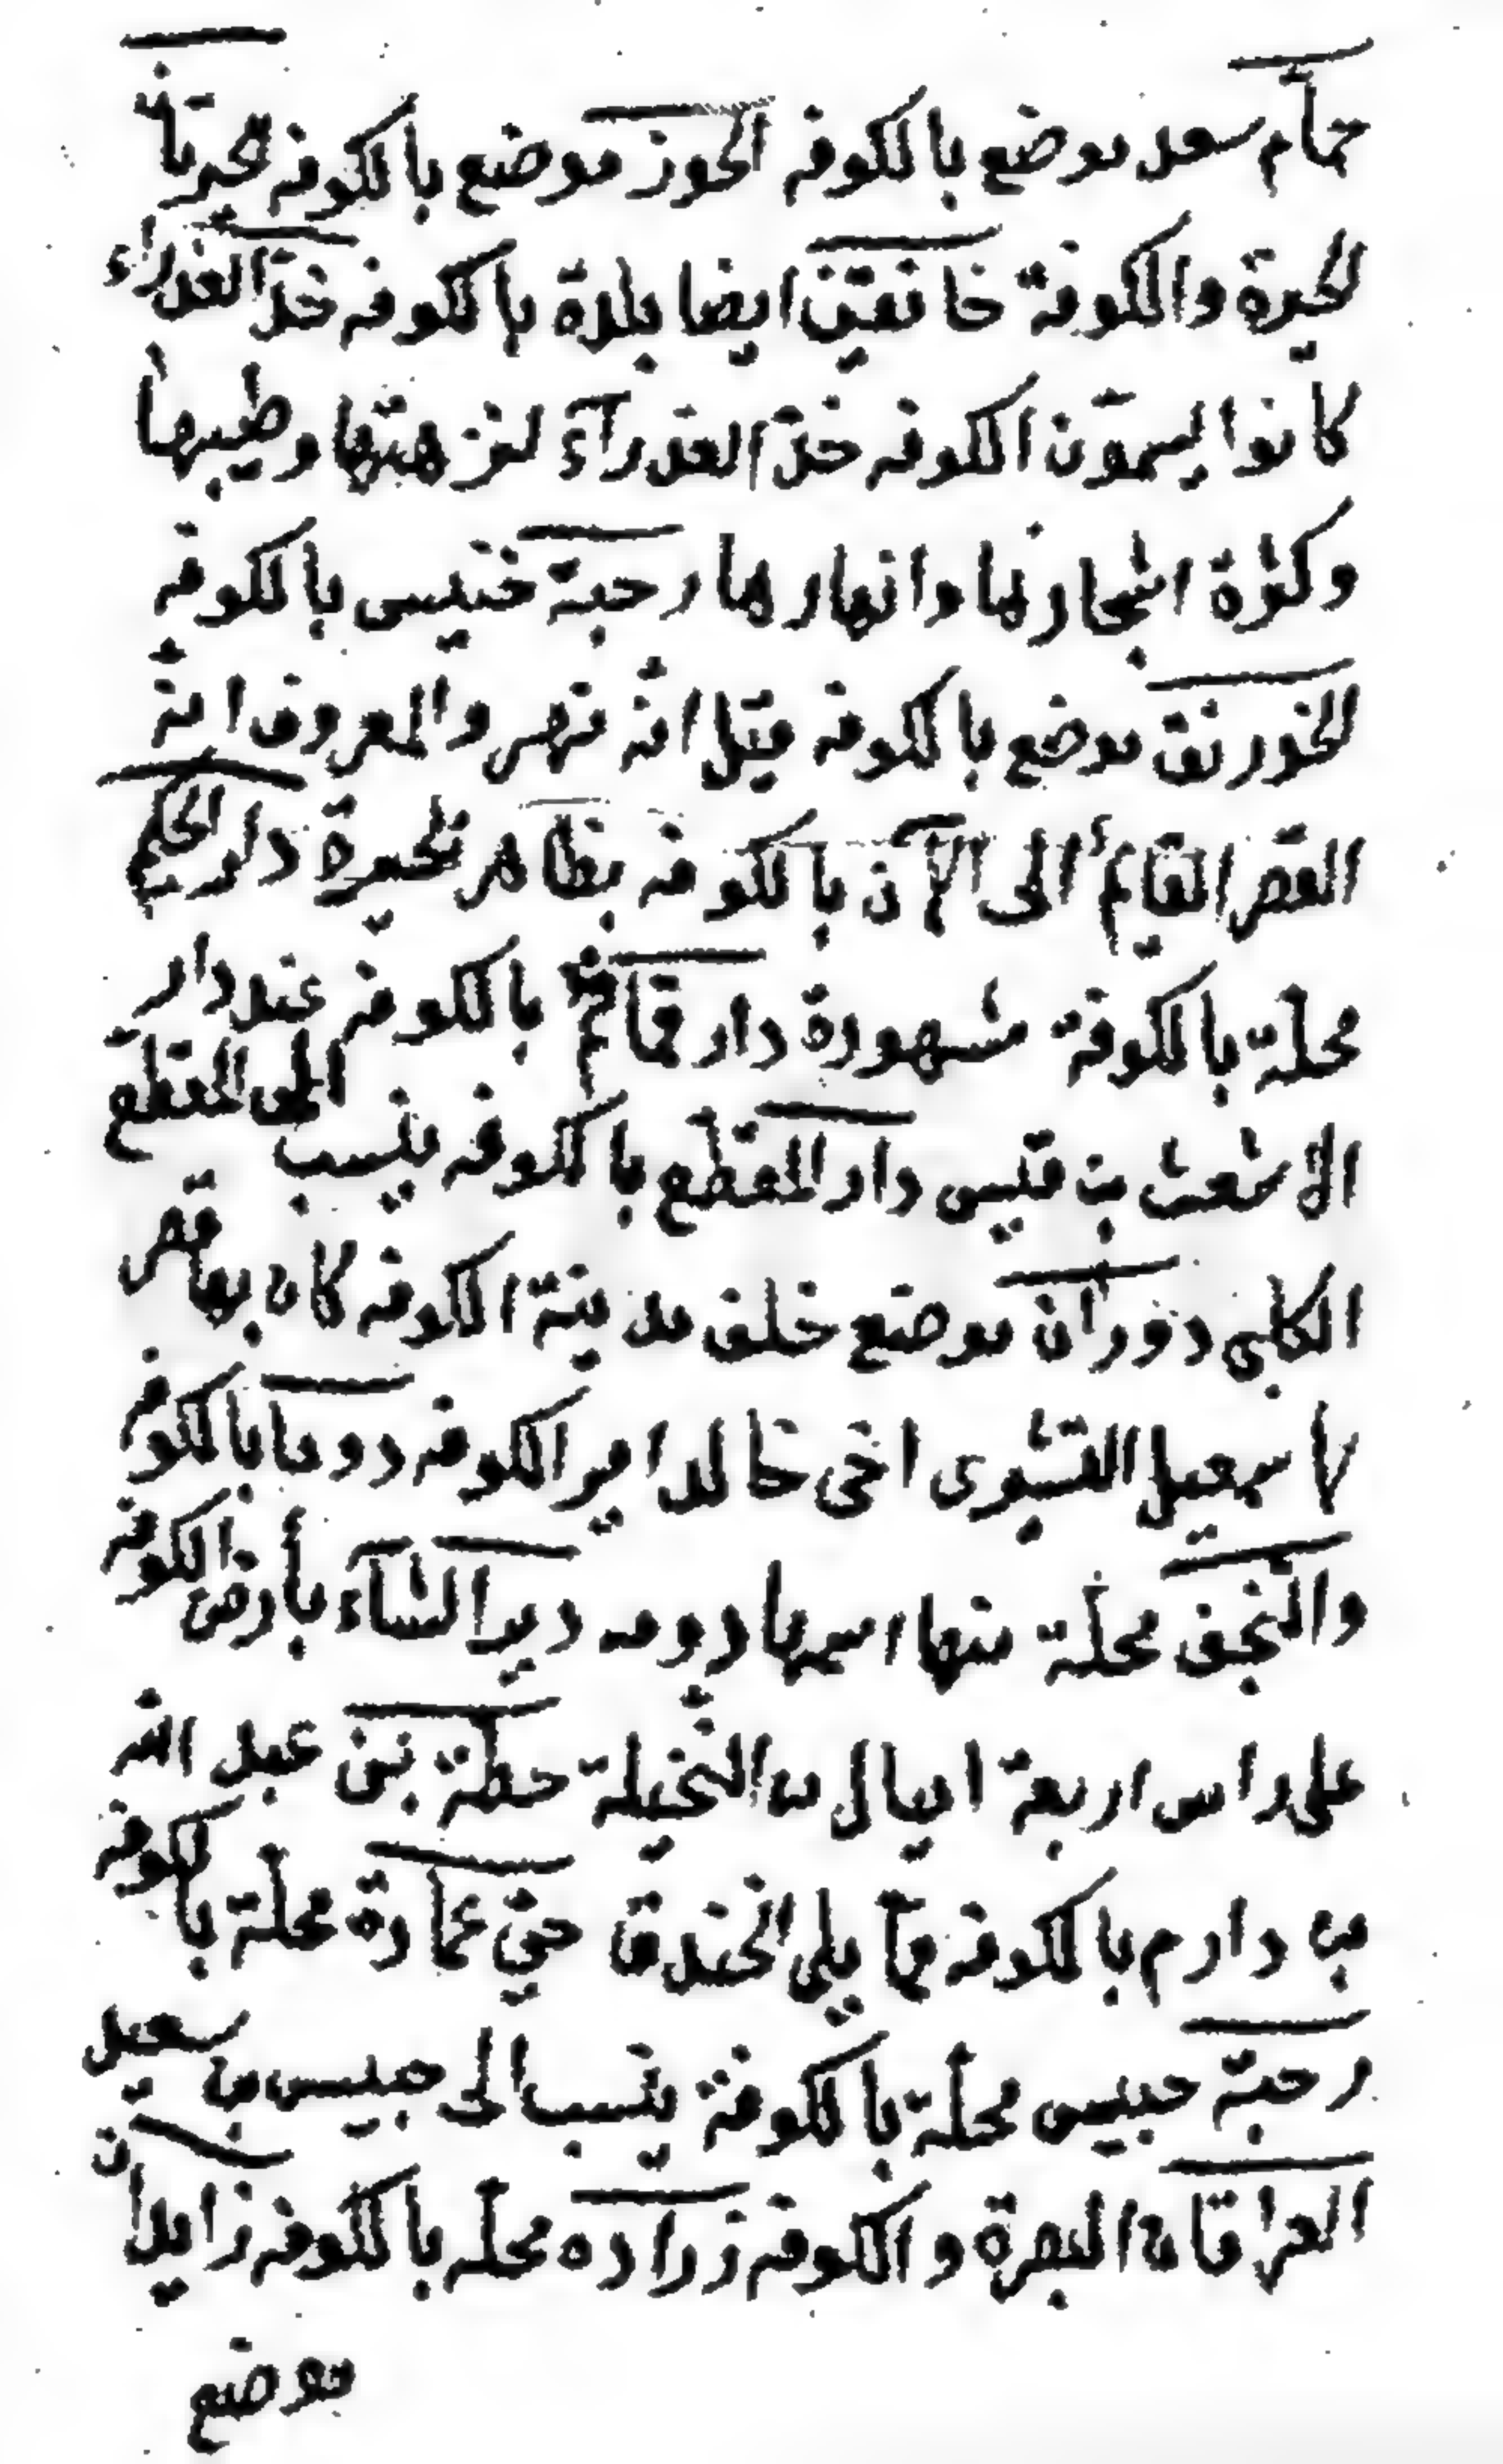 حمام سعد موضع بالكوفه الحوز موضع بالكوفه الحيرتان
الحيرة والكوفة خانقين ايضا بلدة بالكوفه خدّ العذراء
كانوا يسمّون الكوفه خدّ العذرآء لنزهتها وطيبها
وكثرة اشجارها وانهارها رحبة خنيس بالكوفه
الخورنق موضع بالكوفه قيل انّه نهر والمعروف انّه
القصر القايم إلى الآن بالكوفه بظاهر الحيرة دار الحكيم
محلّة بالكوفة مشهورة دار قمام بالكوفه عند دار
الاشعث بن قيس دار المقطّع بالكوفه ينسب الى المقطع
الكلبى دوران موضع خلف مدينة الكوفه كان بها قصر
لاسمعيل القسرى اخى خالد امير الكوفه دوما بالكوفه
والنجف محلّة منها اسمها دومه دير الشآء بأرض الكوفه
على راس اربعة اميال من النّخيلة خطّة بنى عبد الله
بن دارم بالكوفه ممّا يلى الخندق حىّ عمارة محلّة بالكوفه
رحبة حبيس محلّة بالكوفة ينسب الى حبيس بن سعيد
العراقان البصرة والكوفه زراره محلّه بالكوفه زايدان
موضع